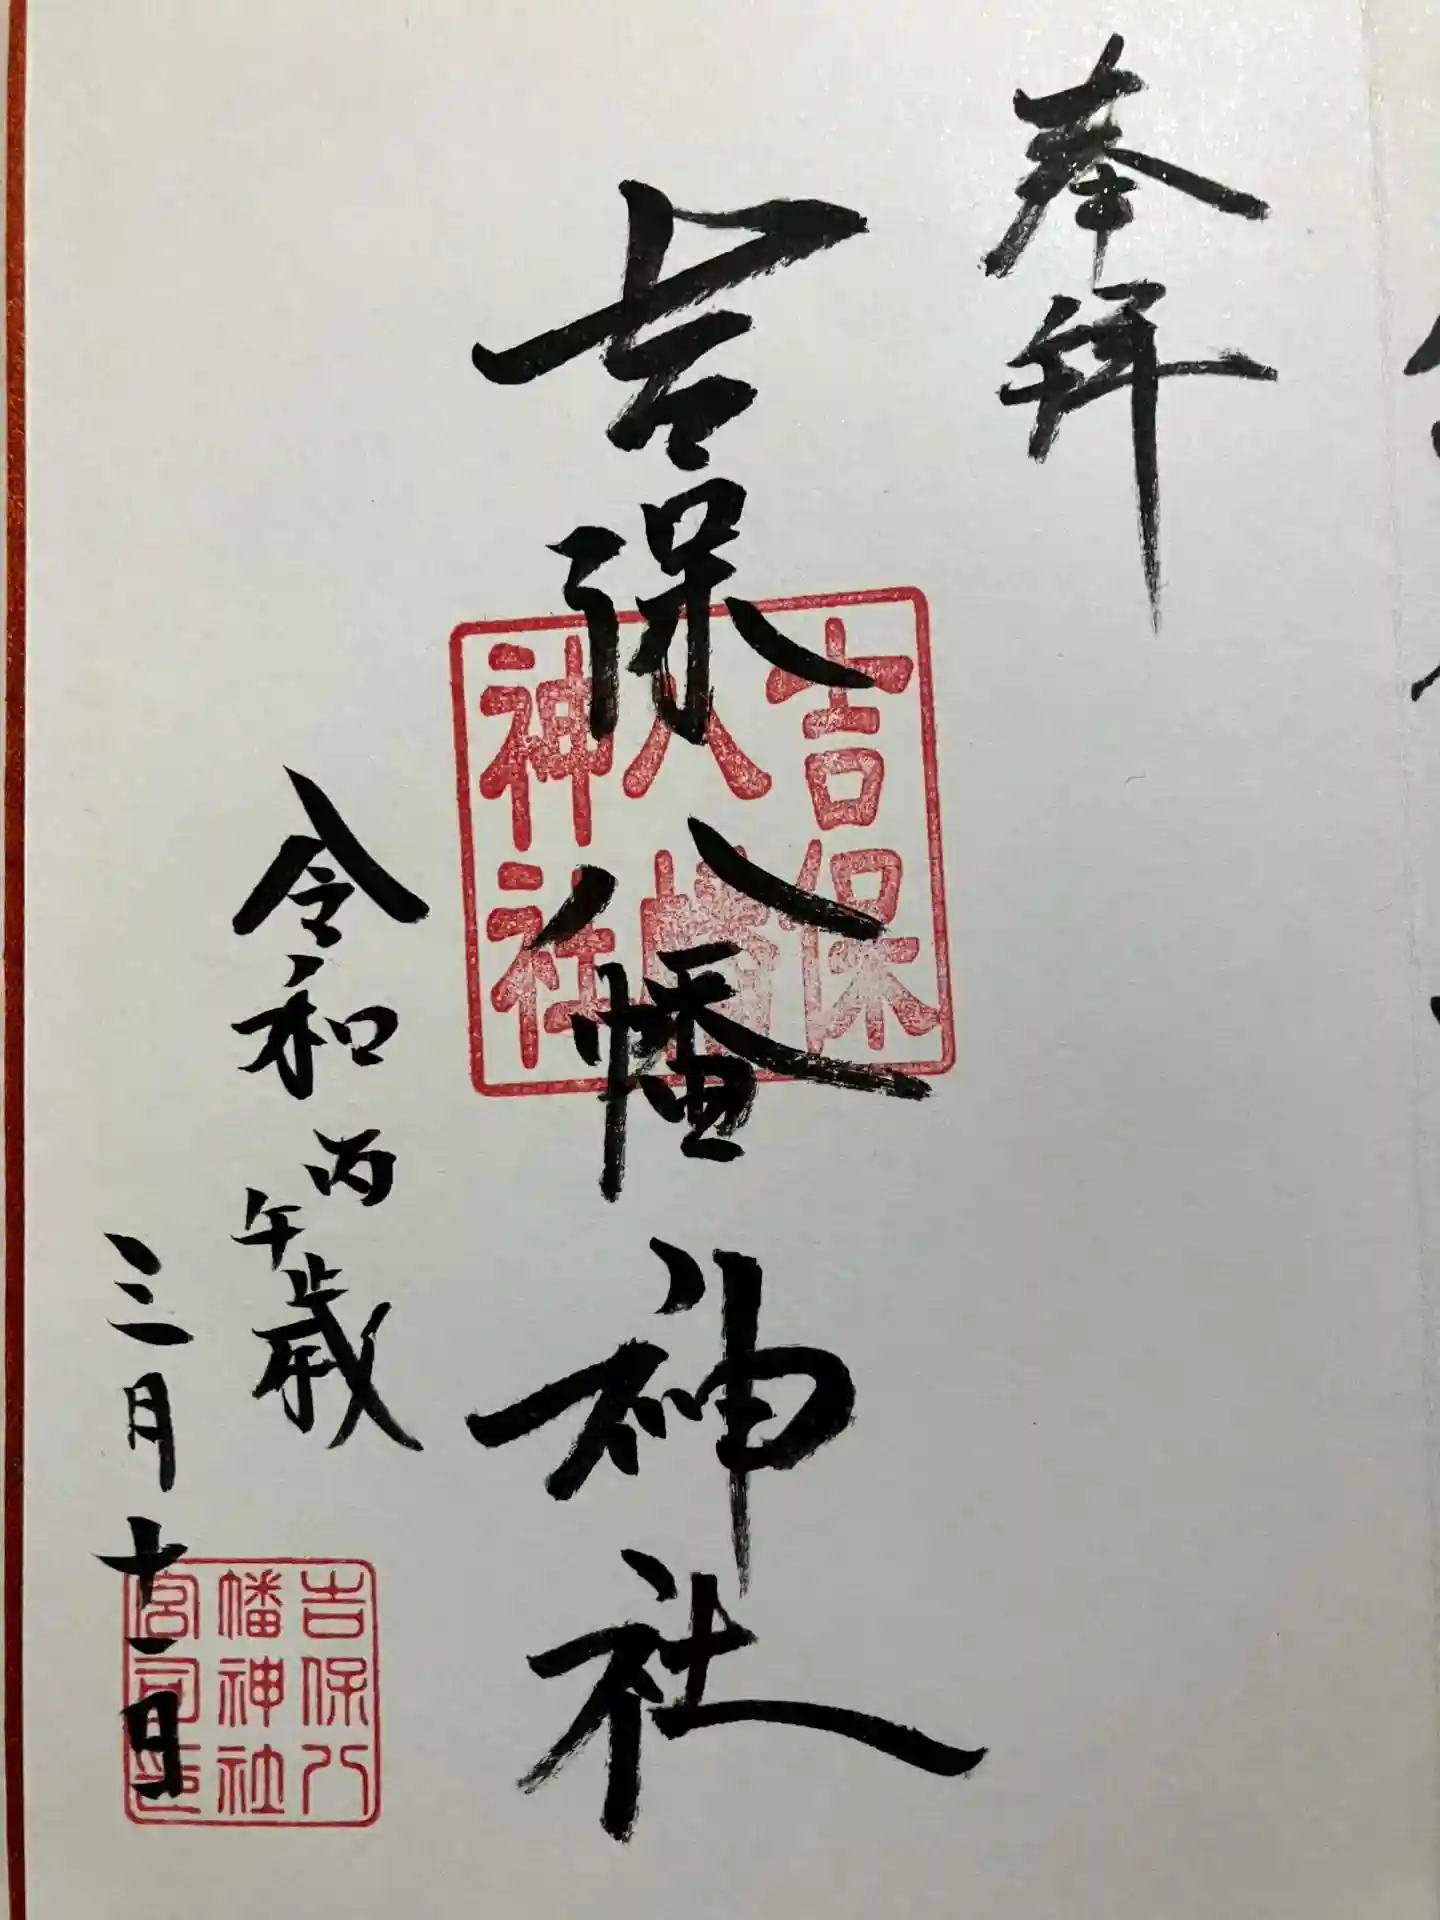 奉拝
吉保八幡神社
吉保
八幡
神社
令和丙午歳
三月十一日
吉保八
幡神社
宮司